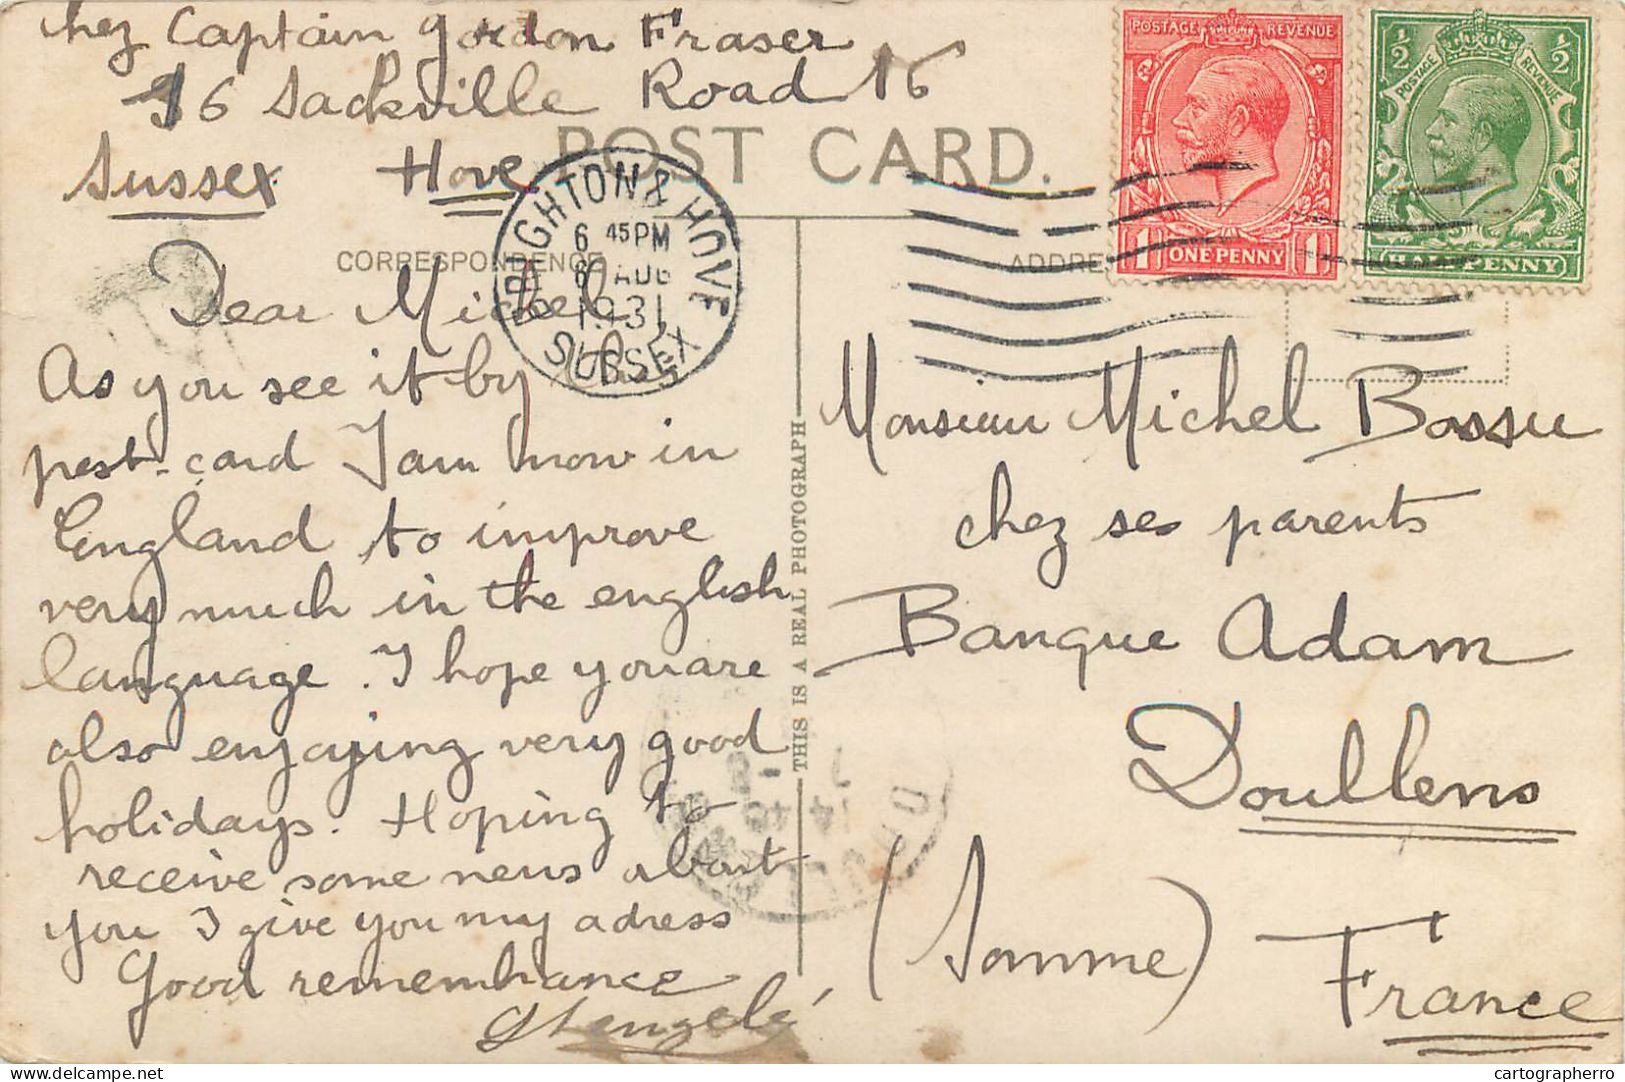 chez Captain Gordon Fraser
96 Sackville Road 16
Sussex Hove
POST CARD.
CORRESPONDENCE
Dear Michel,
As you see it by this
post-card I am now in
England to improve
very much in the english
language. I hope you are
also enjoying very good
holidays. Hoping to
receive some news about
you I give you my adress
Good remembrance
BRIGHTON & HOVE
6 45 PM
6 AUG
1931
SUSSEX
THIS IS A REAL PHOTOGRAPH
POSTAGE REVENUE
1 ONE PENNY 1
1/2 1/2
POSTAGE REVENUE
HALF PENNY
Monsieur Michel Bossu
chez ses parents
Banque Adam
Doullens
(Somme)
France
cartographerro
delcampe.net